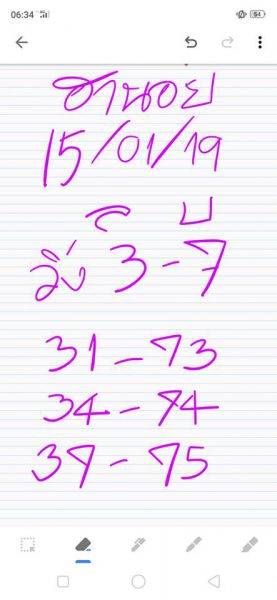 06:34 54
ฮานอย
15/01/19
ล บ
วิ่ง 3-7
31-73
34-74
39-75